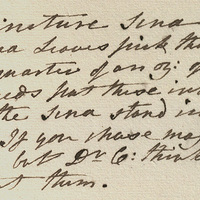 incture Sena
ea Leaves pick tha
quarter of an oz: of
eeds put these in
the Sena stand in
If you chuse ma
but Dr C: thin
t them.